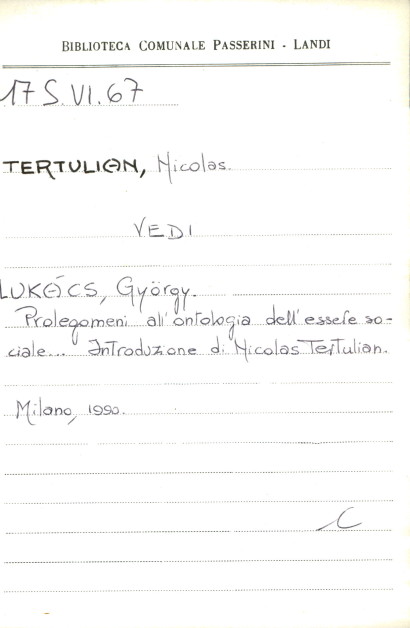 BIBLIOTECA COMUNALE PASSERINI - LANDI
17 S.VI.67
TERTULIAN, Nicolas.
VEDI
LUKÁCS, György.
Prolegomeni all'ontologia dell'essere so-
ciale... Introduzione di Nicolas Tertulian.
Milano, 1990.
C